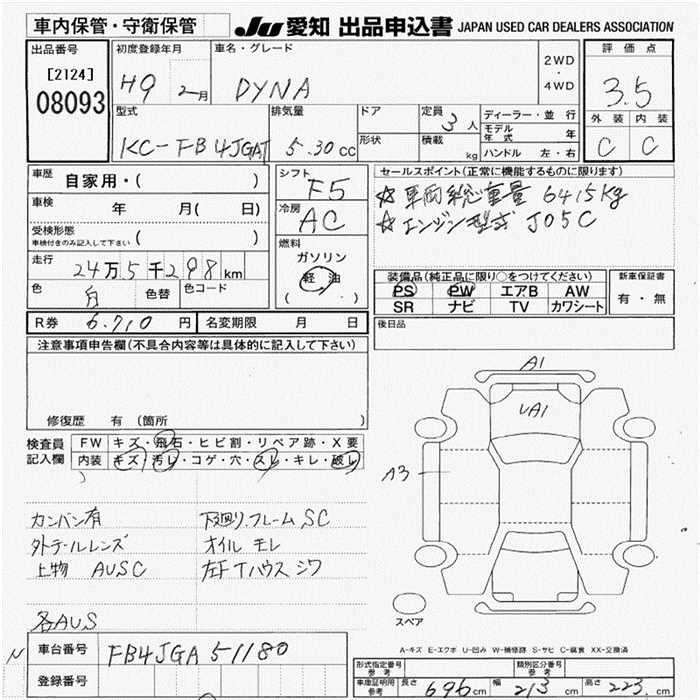 車内保管・守衛保管 JU 愛知 出品申込書 JAPAN USED CAR DEALERS ASSOCIATION
出品番号 初度登録年月 車名・グレード 評価点
[2124] H9 2月 DYNA 2WD・4WD 3.5
08093
型式 排気量 ドア 定員 3人 ディーラー・並行 外装 内装
KC-FB4JGAT 5.30cc 形状 積載 kg モデル年式 年 C C
ハンドル 左・右
車歴 自家用・( ) シフト F5 セールスポイント(正常に機能するものに限ります)
車検 年 月( 日) 冷房 AC ☆車両総重量 6415kg
受検形態 車検付きのみ記入して下さい ( ) ☆エンジン型式 J05C
走行 24万5千298km 燃料 ガソリン 軽油 ( )
色 白 色替 色コード
装備品(純正品に限り○をつけてください) 新車保証書
PS PW エアB AW 有・無
SR ナビ TV カワシート
R券 6,710円 名変期限 月 日 後日品
注意事項申告欄(不具合内容等は具体的に記入して下さい)
修復歴 有 (箇所 )
A1
UA1
A3
検査員記入欄 FW キズ・飛石・ヒビ割・リペア跡・X要
内装 キズ・汚レ・コゲ・穴・スレ・キレ・破レ
カンバン有 下廻り.フレームSC
外テールレンズ オイル モレ
上物 AUSC 左F Tハウス シワ
各AUS
スペア
A-キズ E-エクボ U-凹み W-補修跡 S-サビ C-腐食 XX-交換済
車台番号 FB4JGA 51180
登録番号
形式指定番号 参考 類別区分番号 参考
車庫証明用 参考 長さ 696cm 幅 213cm 高さ 223cm